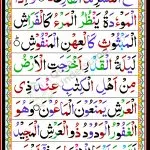 الْمَوْءُدَةُ يَنْظُرُ الْمَرْءُ كَالْفَرَاشِ
الْمَبْثُوْثِ كَالْعِهْنِ الْمَنْفُوْشِ
لَيْلَةُ الْقَدْرِ اَخْرَجَتِ الْاَرْضُ
مِنْ اَهْلِ الْكِتٰبِ عِنْدَ ذِى
الْعَرْشِ يَمْنَعُوْنَ الْمَاعُوْنَ وَهُوَ
الْغَفُوْرُ الْوَدُوْدُ ذُو الْعَرْشِ الْمَجِيْدُ